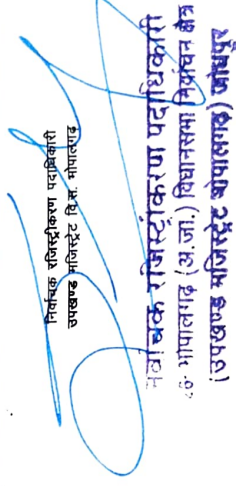 निर्वाचक रजिस्ट्रीकरण पदाधिकारी
उपखण्ड मजिस्ट्रेट वि.स. भोपालगढ़
निर्वाचक रजिस्ट्रीकरण पदाधिकारी
भोपालगढ़ (अ.जा.) विधानसभा निर्वाचन क्षेत्र
(उपखण्ड मजिस्ट्रेट भोपालगढ़) जोधपुर